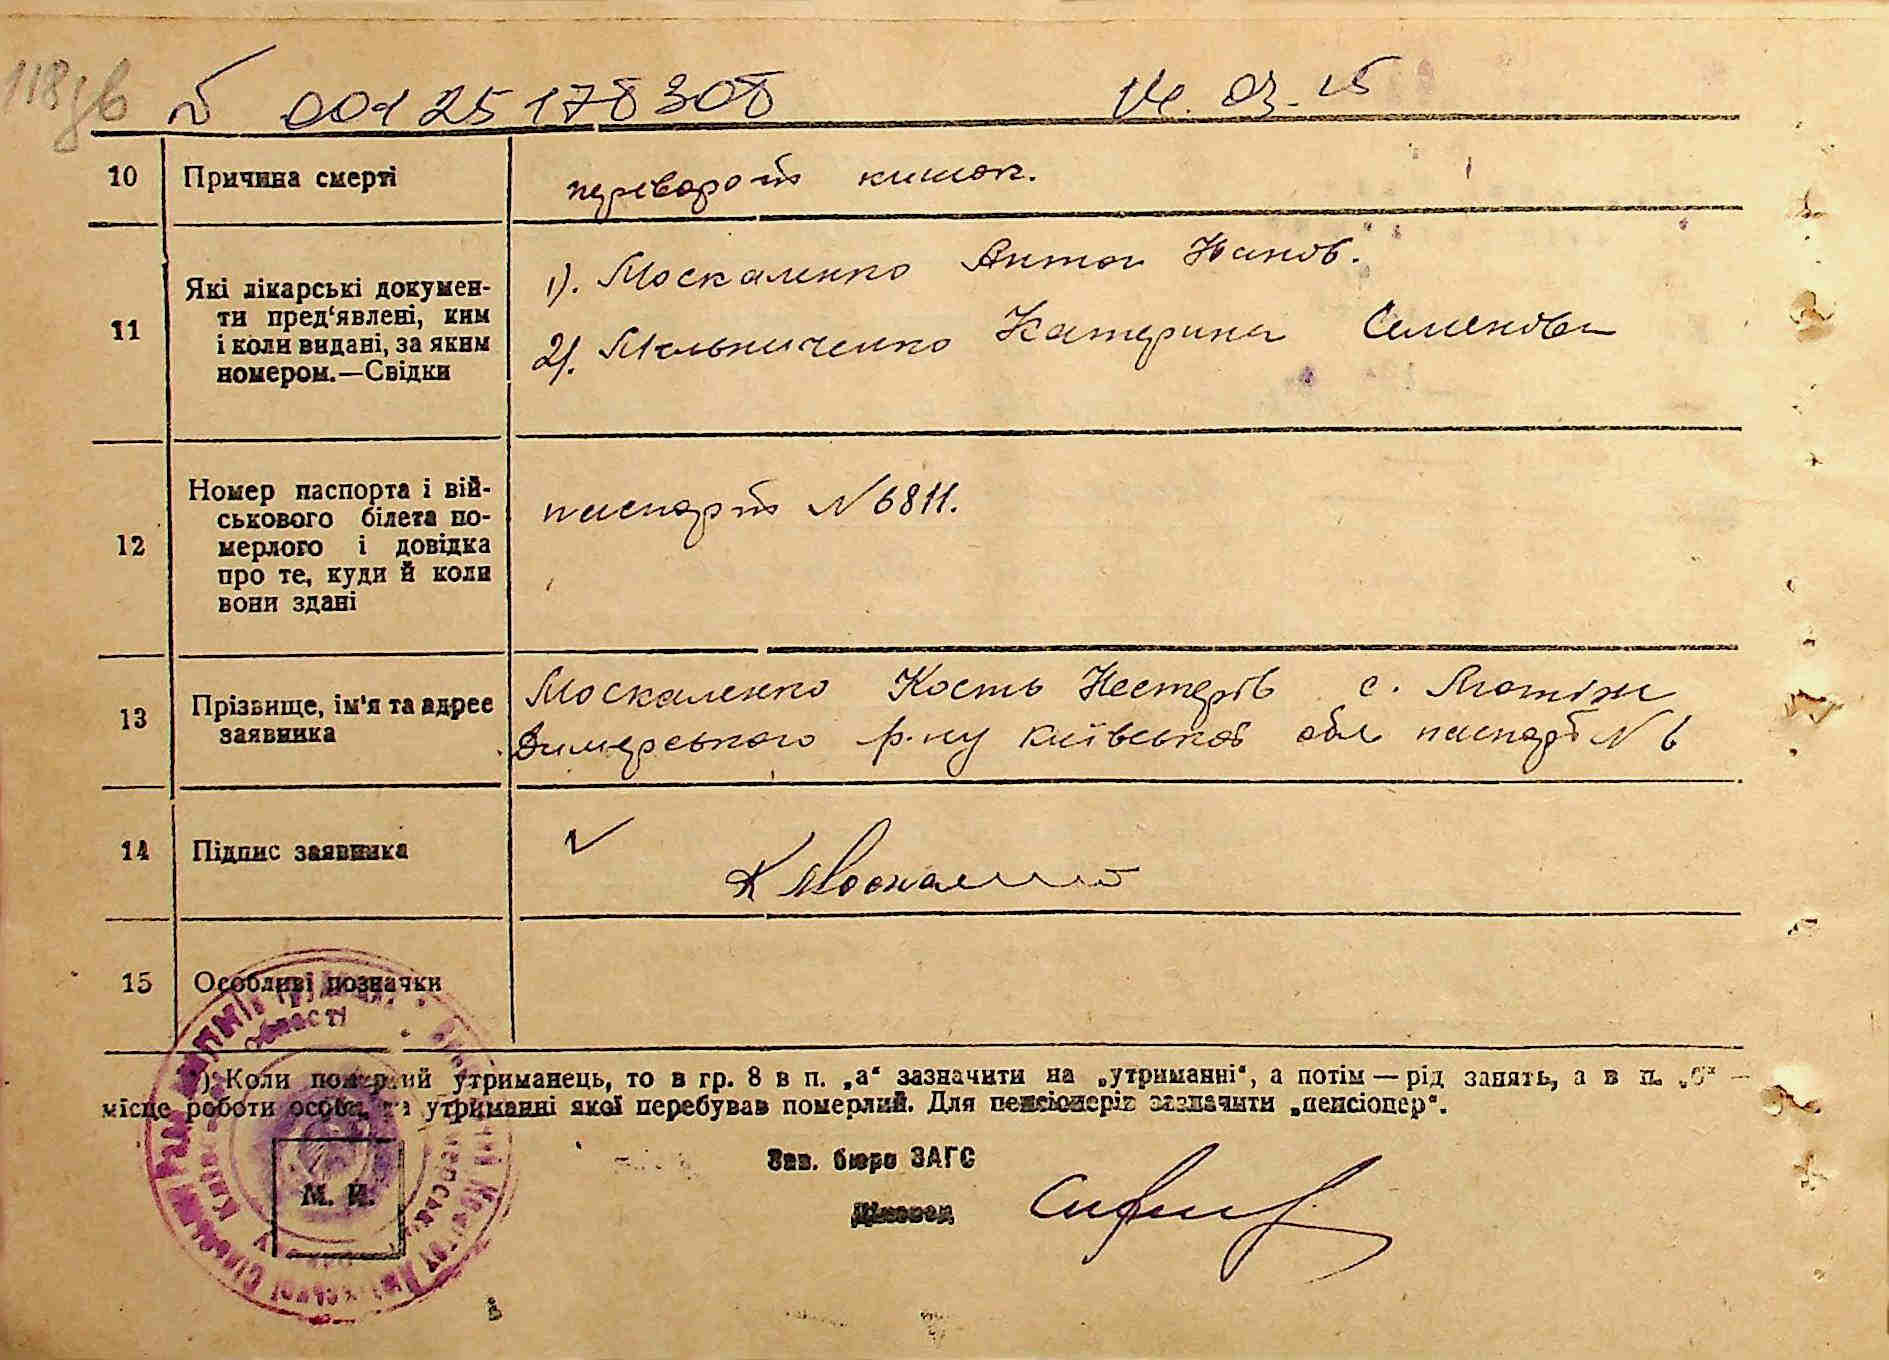 118зв
00125178308 14.03.15
10 Причина смерті переворот кишок.
11 Які лікарські докумен-
ти пред‘явлені, ким
і коли видані, за яким
номером.—Свідки
1). Москаленко Антон Іванов.
2). Мельниченко Катерина Семенова
12 Номер паспорта і вій-
ськового білета по-
мерлого і довідка
про те, куди й коли
вони здані
паспорт № 6811.
13 Прізвище, ім'я та адрес
заявника
Москаленко Кость Нестерів с.
Димерського р-ну Київської обл паспорт № 6
14 Підпис заявника
К Москаленко
15 Особливі позначки
) Коли померлий утриманець, то в гр. 8 в п. „а“ зазначити на „утриманні“, а потім — рід занять, а в п. „б“ —
місце роботи особи, на утриманні якої перебував померлий. Для пенсіонерів зазначити „пенсіонер“.
Зав. бюро ЗАГС
Діловод
М. П.
області